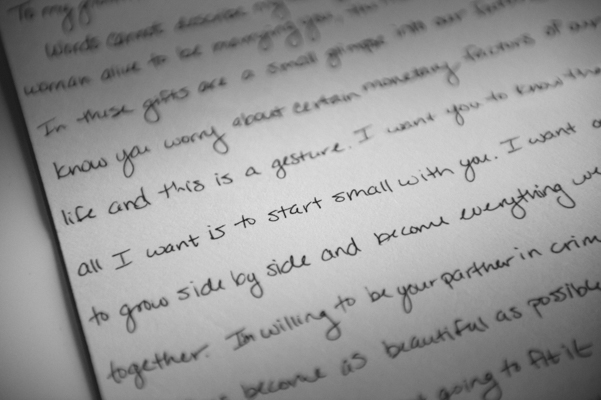 To my
Words cannot describe my
woman alive to be marrying you. This
In these gifts are a small glimpse into our future
know you worry about certain monetary factors of our
life and this is a gesture. I want you to know
all I want is to start small with you. I want
to grow side by side and become everything we
together. I'm willing to be your partner in crim
become as beautiful as possible
going to fit it